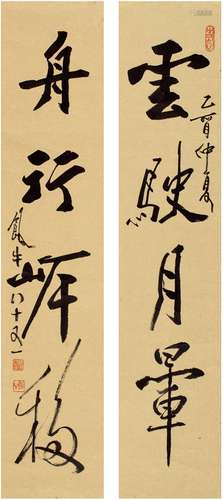 雲駛月暈
乙酉仲夏
舟行岸移
飯牛八十又一